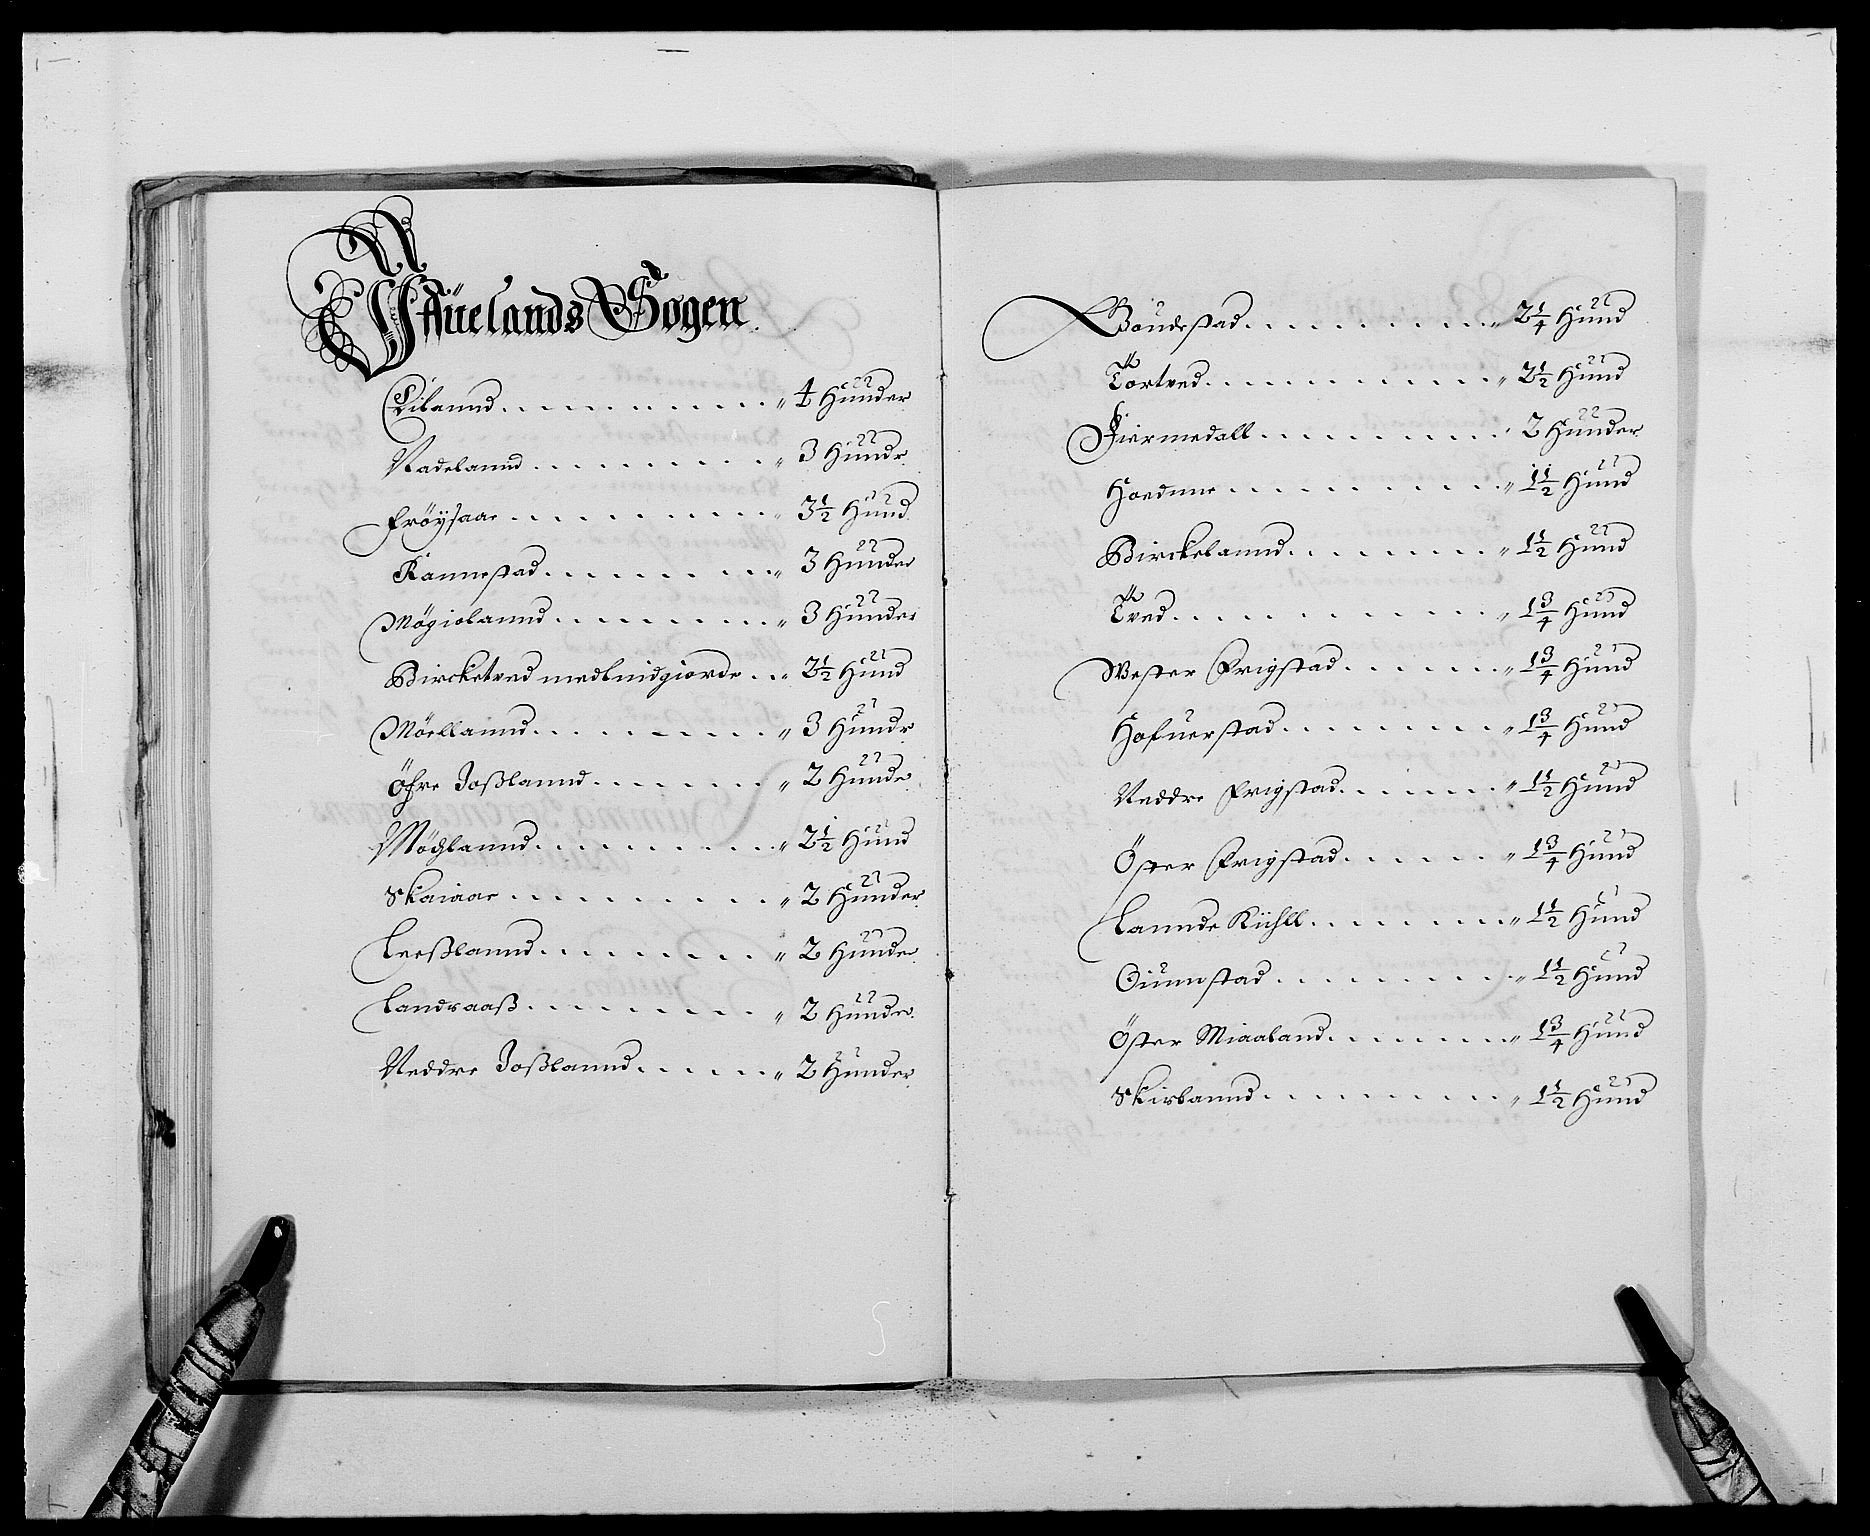 Wäuelands Sogen
Eilannd „ 4 Hünder
Nadelannd „ 3 Hündr
Fröÿsaae „ 3½ Hünd
Kannestad „ 3 Hünder
Mögiolannd „ 3 Hünder
Bircketved medl midgiorde „ 2½ Hünd
Möellannd „ 3 Hündr
Öfre Joßlannd „ 2 Hünder
Möglannd „ 2½ Hünd
Skaiaae „ 2 Hünder
Leeßlannd „ 2 Hünder
Landraaß „ 2 Hünder
Neddre Joßlannd „ 2 Hünder
Boüdestad „ 2¼ Hünd
Tortved „ 2½ Hünd
Fiermedall 2 Hünder
Hoednne „ 1½ Hünd
Birckelannd „ 1½ Hünd
Tved „ 1¾ Hünd
Wester Frigstad „ 1¾ Hünd
Hofuerstad „ 1¾ Hünd
Neddre Frigstad „ 1½ Hünd
Öster Frigstad „ 1¾ Hünd
Lannde Kiihll „ 1½ Hünd
Giünnstad „ 1½ Hünd
Öster Miaaland „ 1¾ Hünd
Skirlannd „ 1½ Hünd